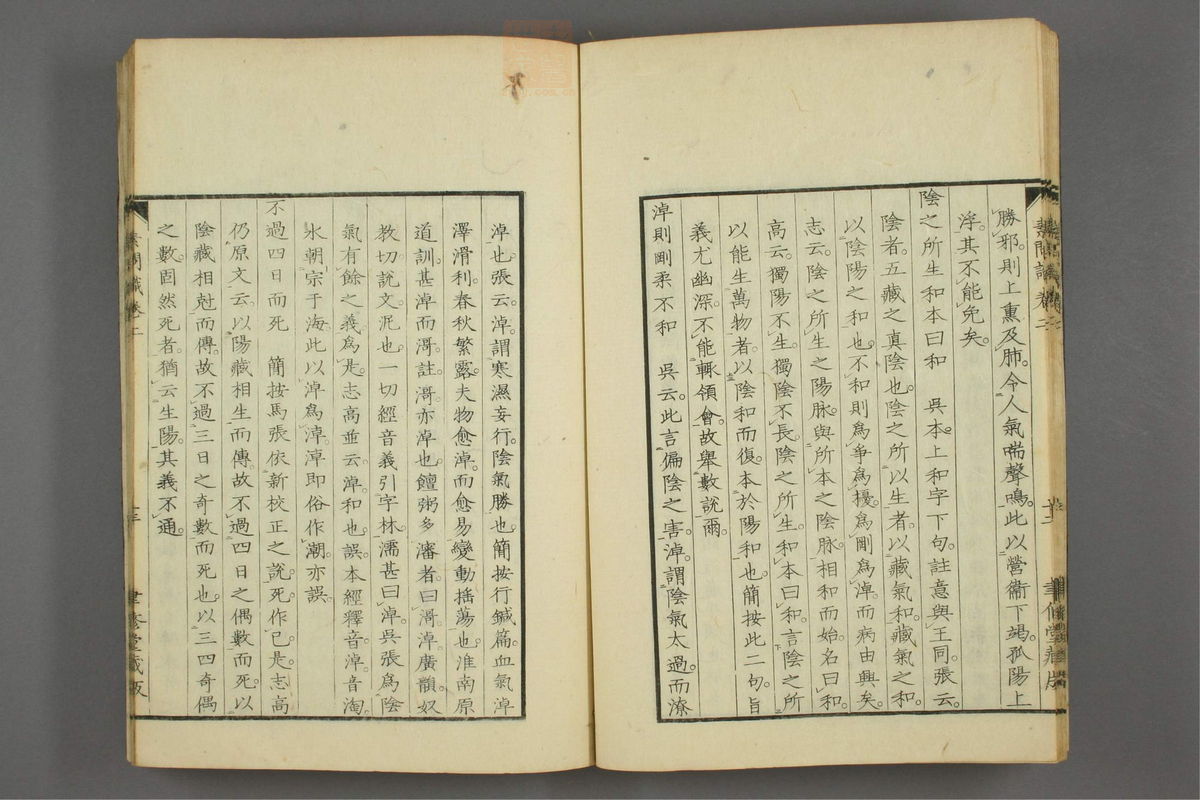 勝邪則上熏及肺。令人氣喘聲鳴。此以營衞下竭。孤陽上
浮。其不能免矣。
陰之所生和本曰和　吳本上和字下句。註意與王同。張云。
陰者。五藏之眞陰也。陰之所以生者。以藏氣和。藏氣之和。
以陰陽之和也。不和則爲爭爲擾。爲剛爲淖。而病由興矣。
志云。陰之所生之陽脉。與所本之陰脉。相和而始名曰和。
高云。獨陽不生。獨陰不長。陰之所生。和本曰和。言陰之所
以能生萬物者。以陰和而復。本於陽和也。簡按此二句。旨
義尤幽深。不能輒領會。故舉數說爾。
淖則剛柔不和　吳云。此言偏陰之害。淖。謂陰氣太過而潦
淖也。張云。淖。謂寒濕妄行。陰氣勝也。簡按行鍼篇。血氣淖
澤滑利。春秋繁露。夫物愈淖。而愈易變動搖蕩也。淮南原
道訓。甚淖而滒。註。滒亦淖也。饘粥多瀋者曰滒。淖。廣韻。奴
教切。說文。泥也。一切經音義引字林。濡甚曰淖。吳張爲陰
氣有餘之義。爲是。志高並云。淖和也。誤。本經釋音。淖。音淘。
氷朝宗于海。此以淖爲淖。淖即俗作潮。亦誤。
不過四日而死　簡按馬張依新校正之說。死作已。是。志高
仍原文云。以陽藏相生而傳。故不過四日之偶數而死。以
陰藏相尅而傳。故不過三日之奇數而死也。以三四奇偶
之數。固然死者。猶云生陽。其義不通。
素問識卷二
聿修堂藏版